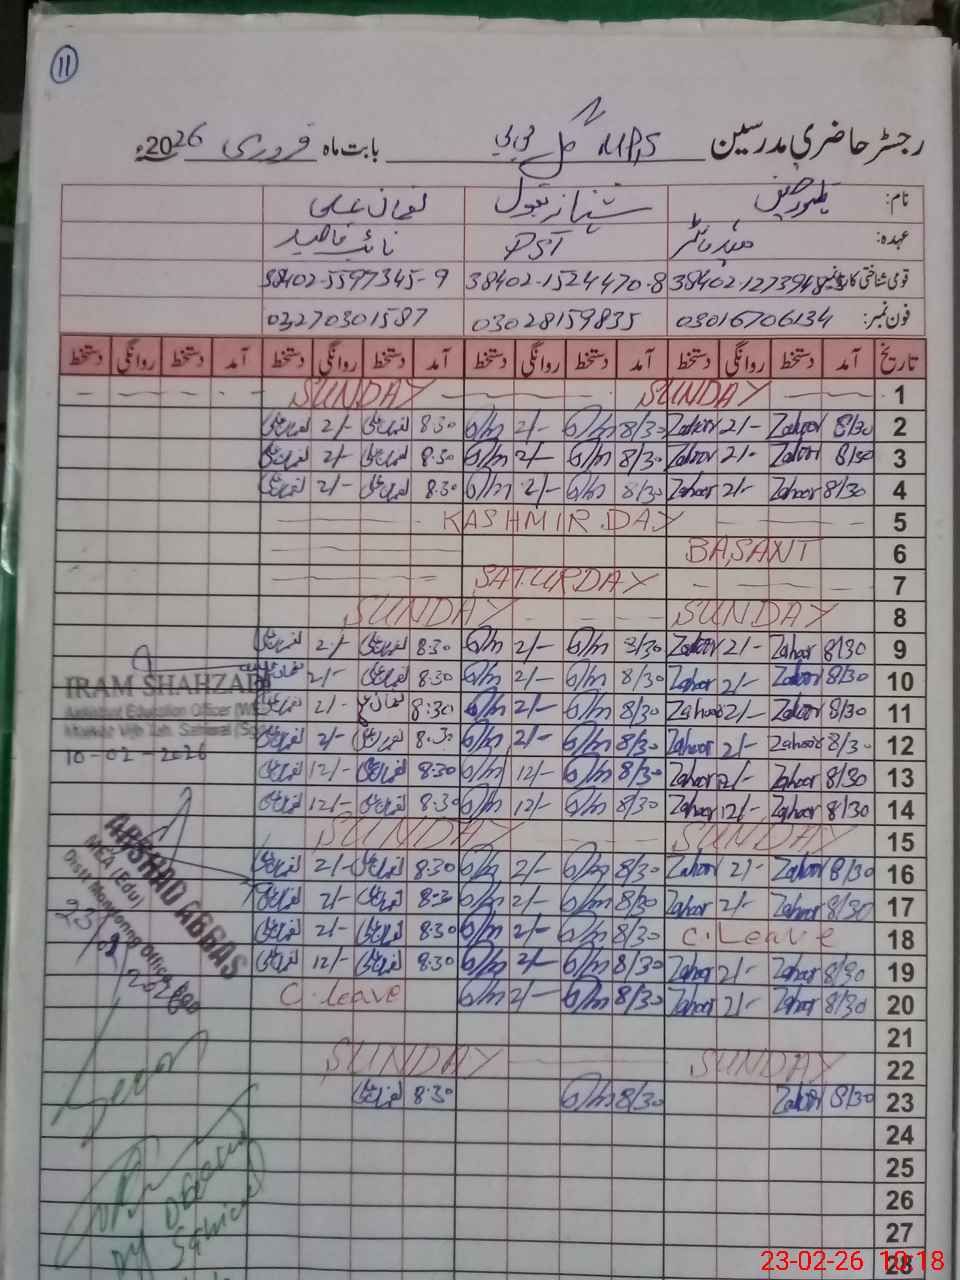 11
رجسٹر حاضری مدرسین MPS گل بی بی بابت ماہ فروری 2026ء
نام: ظہور حسین شہناز بتول نعمان علی
عہدہ: ہیڈ ماسٹر PST نائب قاصد
قومی شناختی کارڈ نمبر 38402-1524470-8 38402-5597345-9
فون نمبر: 03016706134 03028159835 03270301587
تاریخ آمد دستخط روانگی دستخط آمد دستخط روانگی دستخط آمد دستخط روانگی دستخط آمد دستخط روانگی دستخط
1 SUNDAY SUNDAY
2 8/30 Zahoor 2/- Zahoor 8/30 2/- 8:30 2/-
3 8/30 Zahoor 2/- Zahoor 8/30 2/- 8:30 2/-
4 8/30 Zahoor 2/- Zahoor 8/30 2/- 8:30 2/-
5 KASHMIR DAY
6 BASANT
7 SATURDAY
8 SUNDAY SUNDAY
9 8/30 Zahoor 2/- Zahoor 8/30 2/- 8:30 2/-
10 8/30 Zahoor 2/- Zahoor 8/30 2/- 8:30 2/-
IRAM SHAHZADI
11 8/30 Zahoor 2/- Zahoor 8/30 2/- 8:30 2/-
Assistant Education Officer
12 8/30 Zahoor 2/- Zahoor 8/30 2/- 8:30 2/-
10-02-2026
13 8/30 Zahoor 12/- Zahoor 8/30 12/- 8:30 12/-
14 8/30 Zahoor 12/- Zahoor 8/30 12/- 8:30 12/-
15 SUNDAY SUNDAY
16 8/30 Zahoor 2/- Zahoor 8/30 2/- 8:30 2/-
17 8/30 Zahoor 2/- Zahoor 8/30 2/- 8:30 2/-
18 C.Leave 8/30 2/- 8:30 2/-
19 8/30 Zahoor 2/- Zahoor 8/30 2/- 8:30 12/-
20 8/30 Zahoor 2/- Zahoor 8/30 2/- C.leave
ARSHAD ABBAS
MEA (Edu)
Distt Monitoring Office
23/02/2026
21
22 SUNDAY SUNDAY
23 8/30 Zahoor 8/30 8:30
24
25
26
27
28
23-02-26 10:18